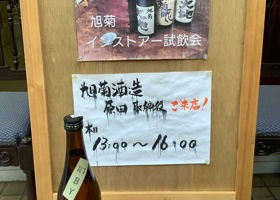 旭菊
インストアー試飲会
旭菊酒造
原田 取締役 ご来店!
本日
13:00〜16:00
RBY